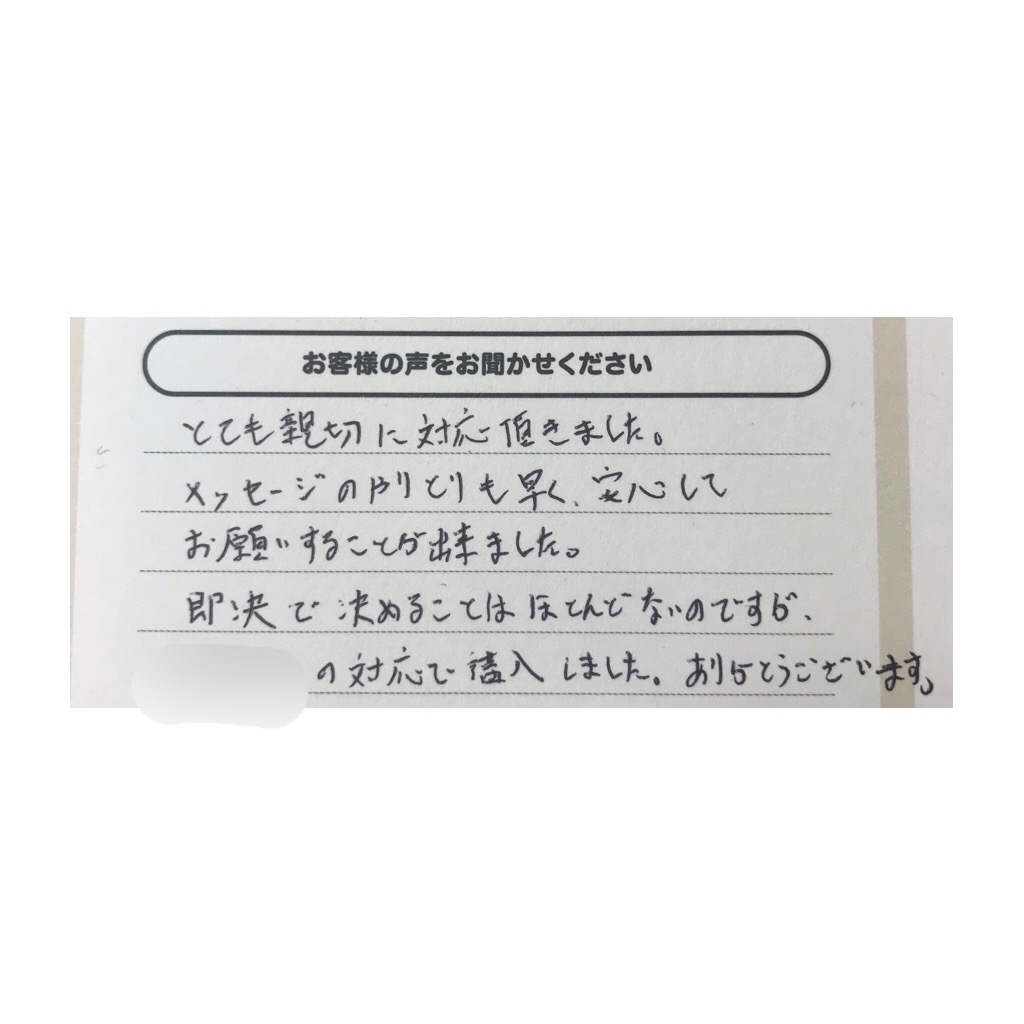 お客様の声をお聞かせください
とても親切に対応頂きました。
メッセージのやりとりも早く、安心して
お願いすることが出来ました。
即決で決めることはほとんどないのですが、
の対応で購入しました。ありがとうございます。